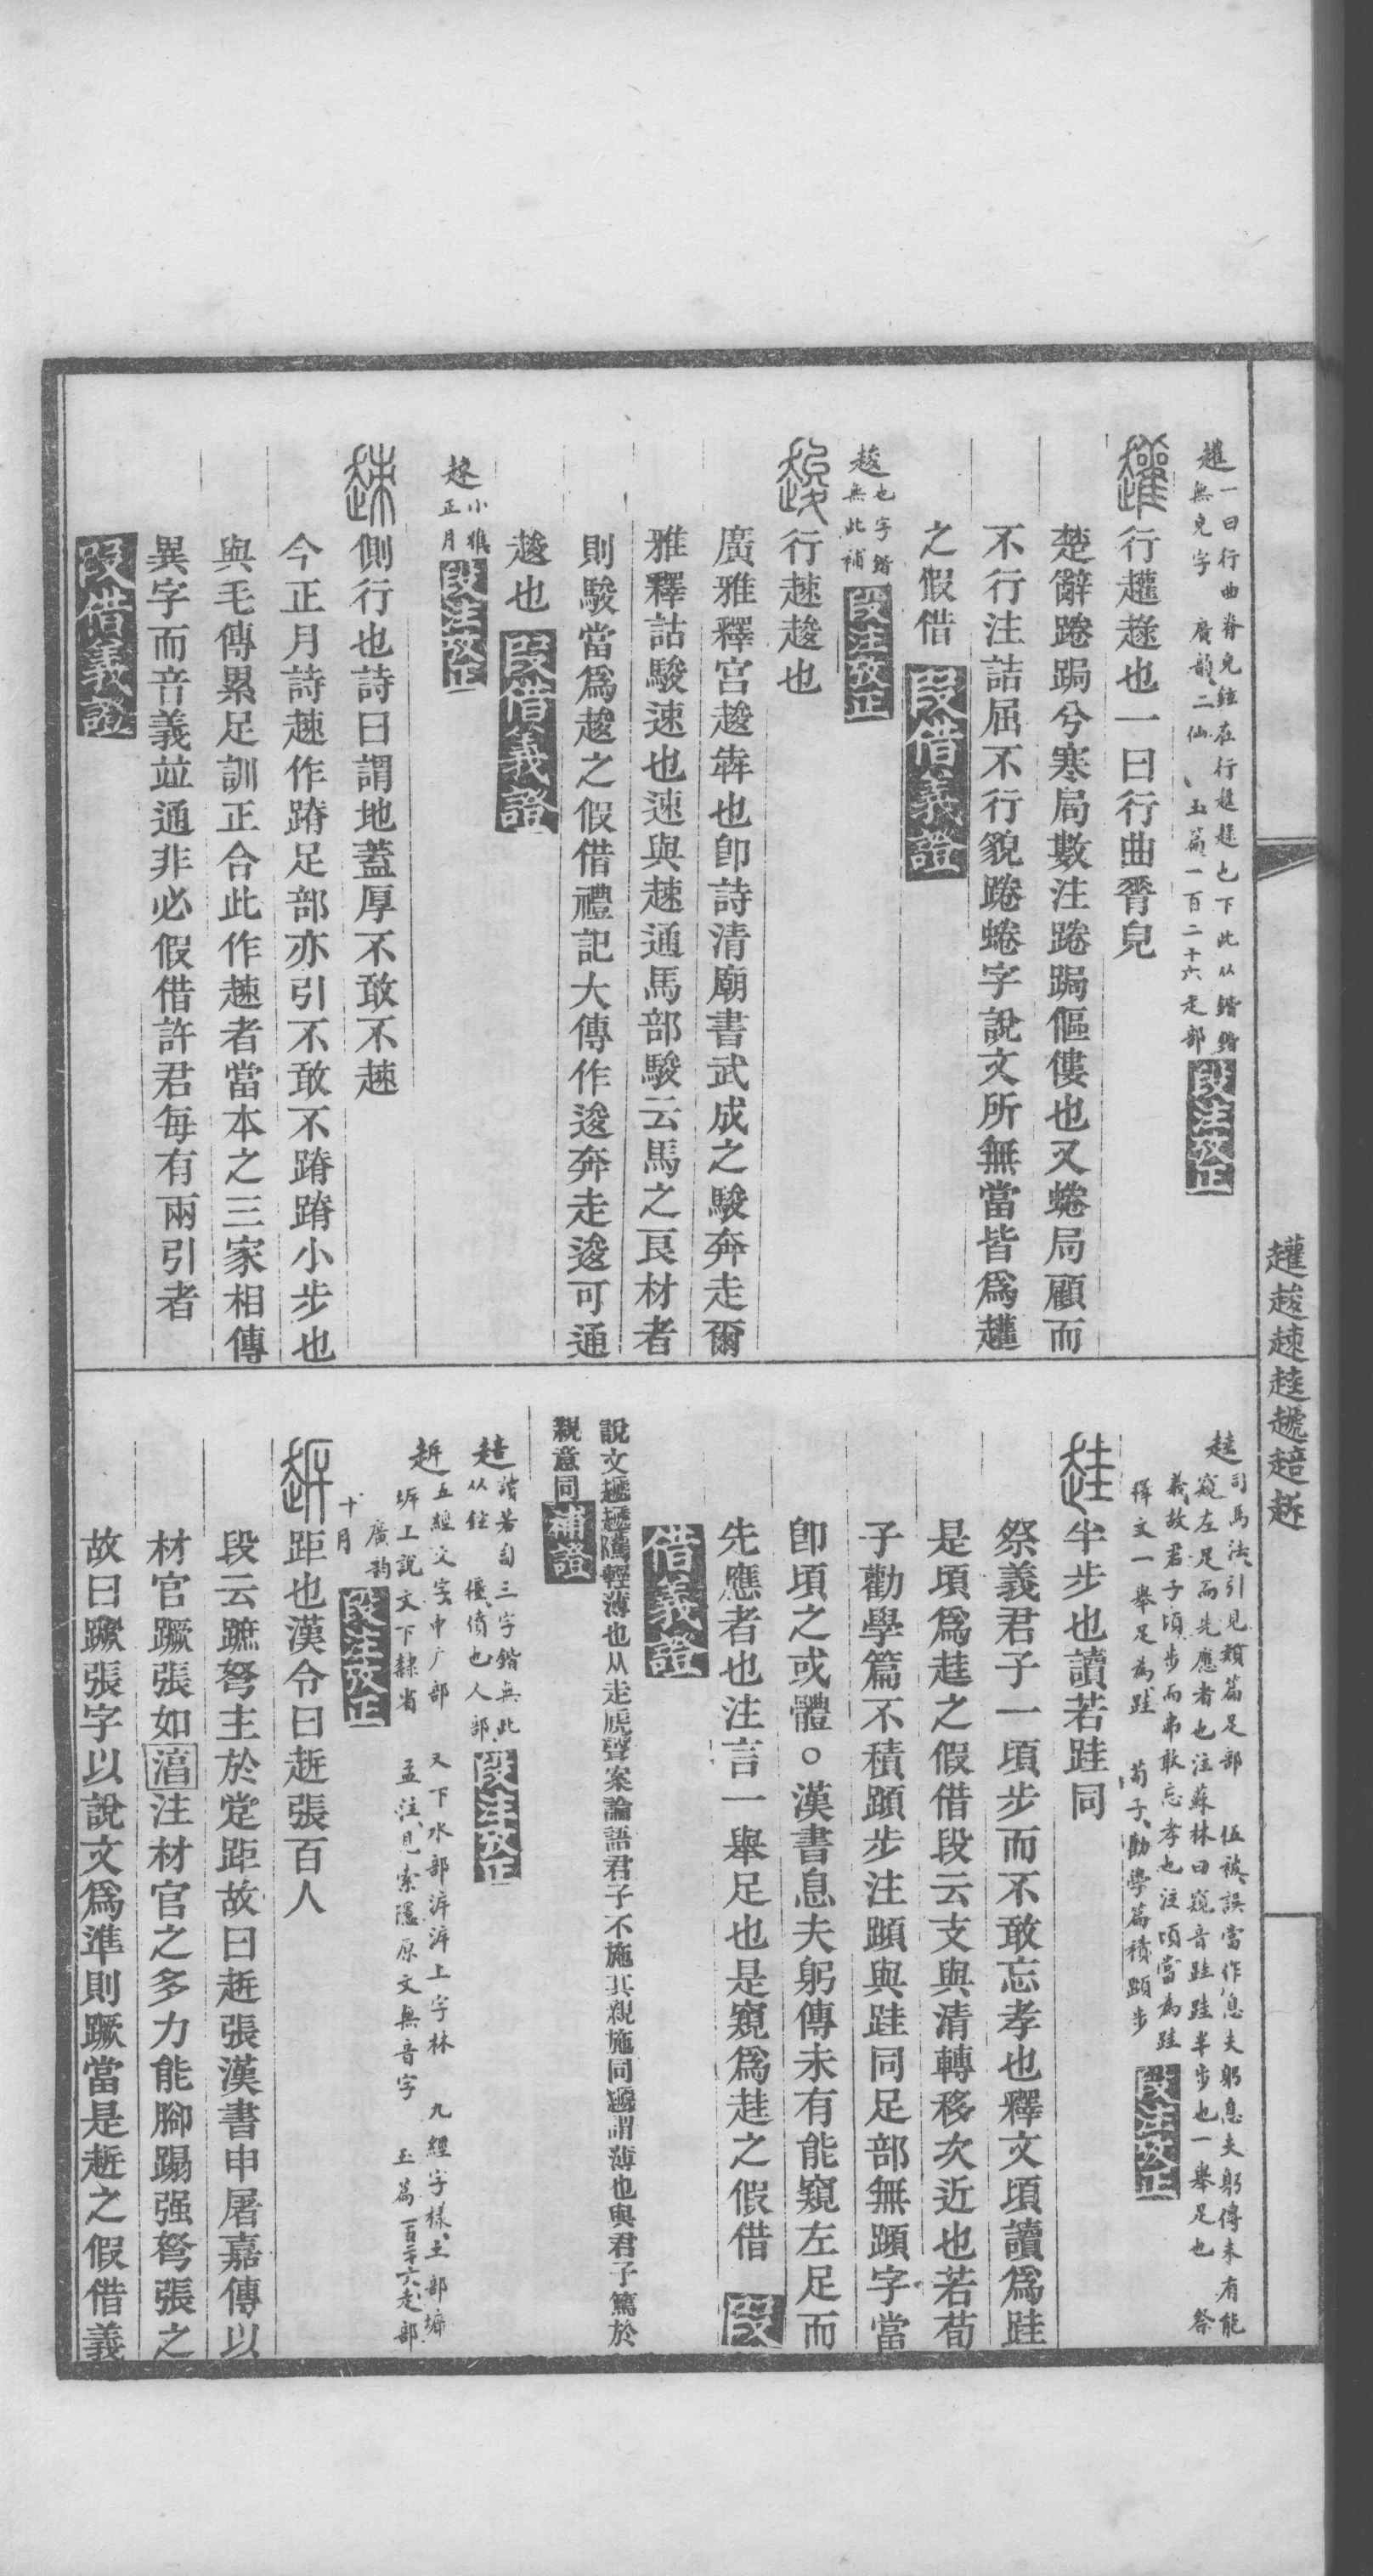 趯䞤䞭䞨䞾䞳䟆
趯一曰行曲脊皃鉉在行趯趢也下此从鍇鍇
無皃字　廣韻二仙　玉篇一百二十六走部
段注攷正
趯行趯趢也一曰行曲脊皃
楚辭踡跼兮寒局數注踡跼傴僂也又蜷局顧而
不行注詰屈不行貌踡蜷字說文所無當皆爲趯
之假借　段借義證
䞭也字鍇
無此補
段注攷正
䞭行趚䞭也
廣雅釋宮䞭犇也卽詩清廟書武成之駿奔走爾
雅釋詁駿速也速與趚通馬部駿云馬之良材者
則駿當爲䞭之假借禮記大傳作逡奔走逡可通
䞭也　段借義證
趚小雅
正月
段注攷正
趚側行也詩曰謂地蓋厚不敢不趚
今正月詩趚作蹐足部亦引不敢不蹐蹐小步也
與毛傳累足訓正合此作趚者當本之三家相傳
異字而音義竝通非必假借許君每有兩引者
段借義證
䞨司馬法引見類篇足部　伍被誤當作息夫躬息夫躬傳未有能
窺左足而先應者也注蘇林曰窺音跬跬半步也一舉足也　祭
義故君子頃步而弗敢忘孝也注頃當爲跬
釋文一舉足爲跬　荀子勸學篇積蹞步
段注攷正
䞨半步也讀若跬同
祭義君子一頃步而不敢忘孝也釋文頃讀爲跬
是頃爲䞨之假借段云支與清轉移次近也若荀
子勸學篇不積蹞步注蹞與跬同足部無蹞字當
卽頃之或體○漢書息夫躬傳未有能窺左足而
先應者也注言一舉足也是窺爲䞨之假借　段
借義證
說文䞾䞾䞴輕薄也从走虒聲案論語君子不施其親施同䞾謂薄也與君子篤於
親意同
補證
䞳讀若匐三字鍇無此
从鉉　僵僨也人部
段注攷正
䟆五經文字中广部　又下水部㴑㴑上字林　九經字樣土部𡍩
𡍩上說文下隸省　孟注見索隱原文無音字　玉篇一百二十六走部
廣韵
十月
段注攷正
䟆距也漢令曰䟆張百人
段云蹠弩主於堂距故曰䟆張漢書申屠嘉傳以
材官蹶張如淳注材官之多力能腳蹋强弩張之
故曰蹶張字以說文爲準則蹶當是䟆之假借義